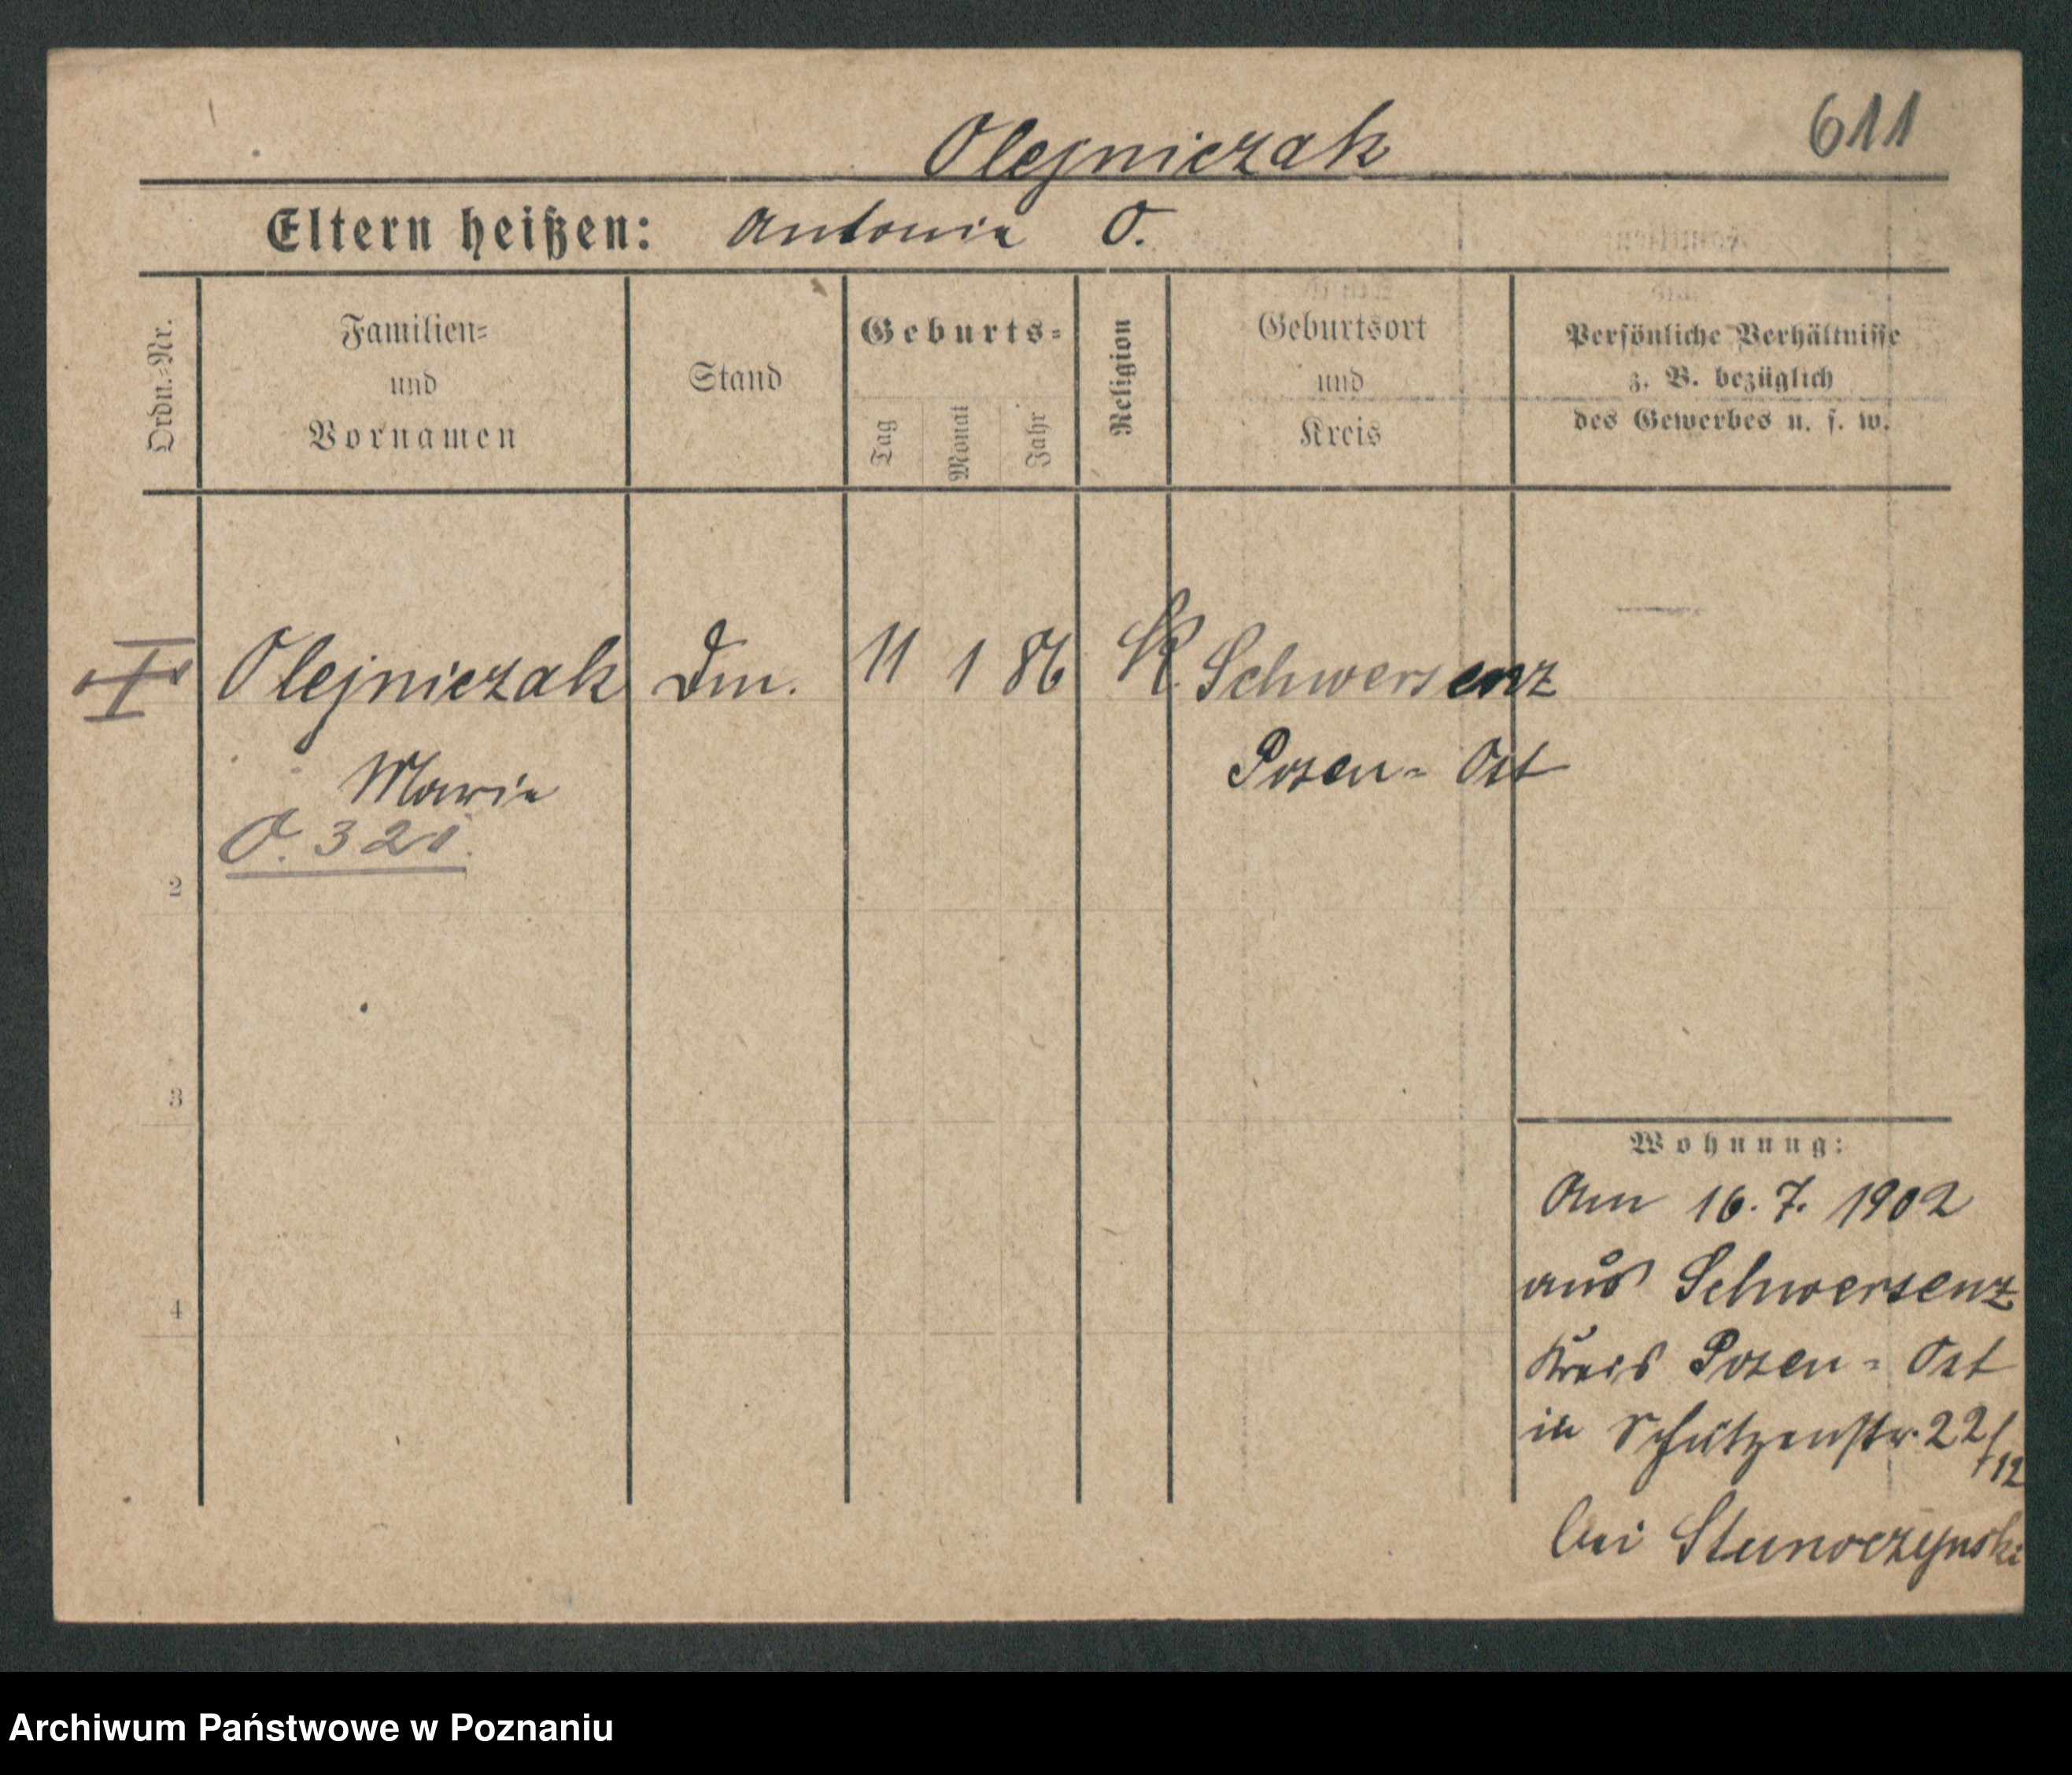 611
Olejniczak
Eltern heißen: Antonia O.
Ordn.=Nr.
Familien=
und
Vornamen
Stand
Geburts=
Tag
Monat
Jahr
Religion
Geburtsort
und
Kreis
Persönliche Verhältnisse
z. B. bezüglich
des Gewerbes u. s. w.
Olejniczak Dm. 11 1 86 K. Schwersenz
Maria Posen=Ost
O. 321.
2
3
4
Wohnung:
Am 16.7. 1902
aus Schwersenz
Kreis Posen=Ost
in Schützenstr. 22/12
bei
Archiwum Państwowe w Poznaniu